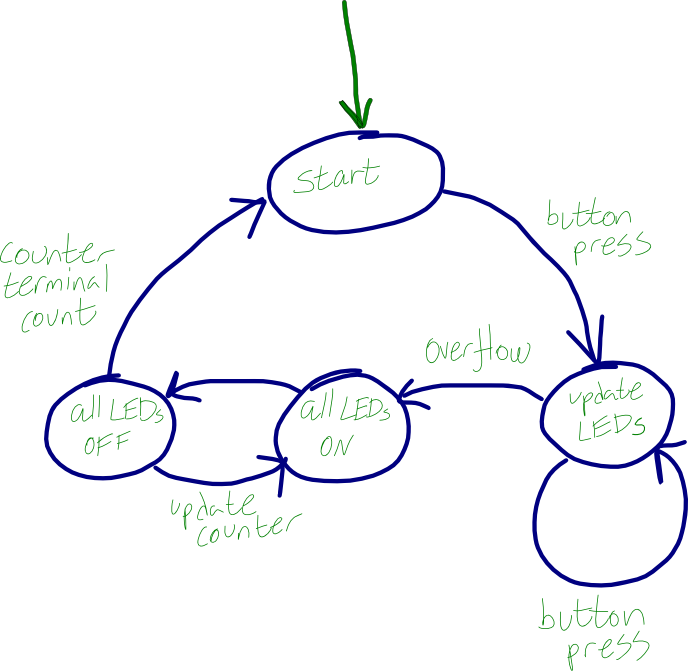 Start
button
press
counter
terminal
count
overflow
all LEDs
OFF
all LEDs
ON
update
LEDs
update
counter
button
press